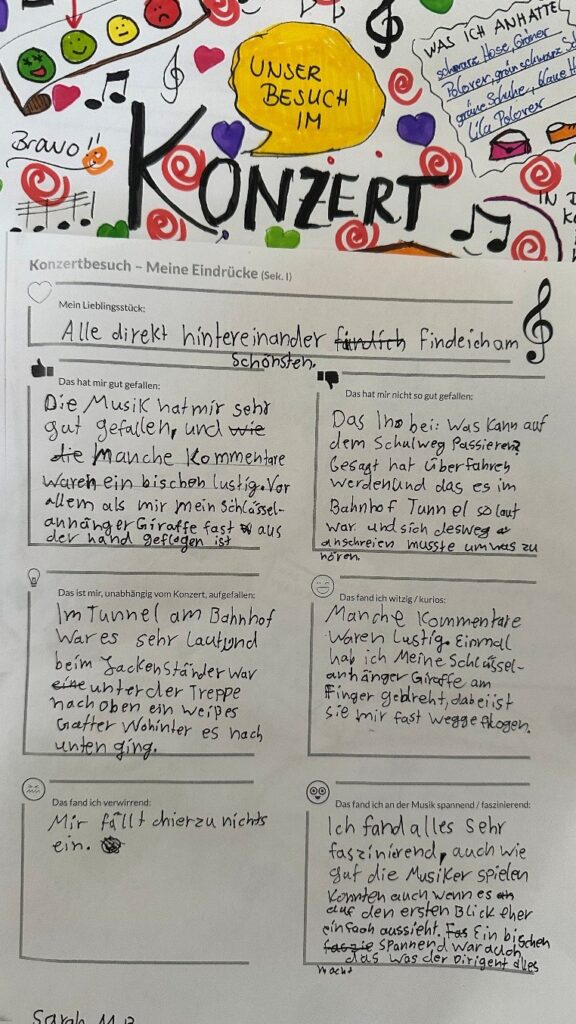 UNSER
BESUCH
IM
WAS ICH ANHATTE
schwarze Hose, Grüner
Polover, grün schwarz
grüne Schuhe, blaue
Lila Polover
Bravo!!
KONZERT
IN
Konzertbesuch – Meine Eindrücke (Sek. I)
Mein Lieblingsstück:
Alle direkt hintereinander findeich am
schönsten.
Das hat mir gut gefallen:
Die Musik hat mir sehr
gut gefallen, und wie
die Manche Kommentare
waren ein bischen lustig. Vor
allem als mir mein Schlüssel-
anhänger Giraffe fast aus
der hand geflogen ist
Das hat mir nicht so gut gefallen:
Das Ino bei: Was kann auf
dem Schulweg Passieren?
Gesagt hat überfahren
werden und das es im
Bahnhof Tunnel so laut
war und sich desweg
anschreien musste um was zu
hören.
Das ist mir, unabhängig vom Konzert, aufgefallen:
Im Tunnel am Bahnhof
war es sehr laut und
beim Jackenständer war
eine unter der Treppe
nach oben ein weißes
Gatter Wohinter es nach
unten ging.
Das fand ich witzig / kurios:
Manche Kommentare
waren lustig. Einmal
hab ich Meine Schlüssel-
anhänger Giraffe am
Finger gedreht, dabei ist
sie mir fast weggeflogen.
Das fand ich verwirrend:
Mir fällt hierzu nichts
ein.
Das fand ich an der Musik spannend / faszinierend:
Ich fand alles sehr
faszinierend, auch wie
gut die Musiker spielen
konnten auch wenn es
auf den ersten Blick eher
einfach aussieht. Fas Ein bischen
faszie spannend war auch
das was der Dirigent alles
macht
Sarah M.B.